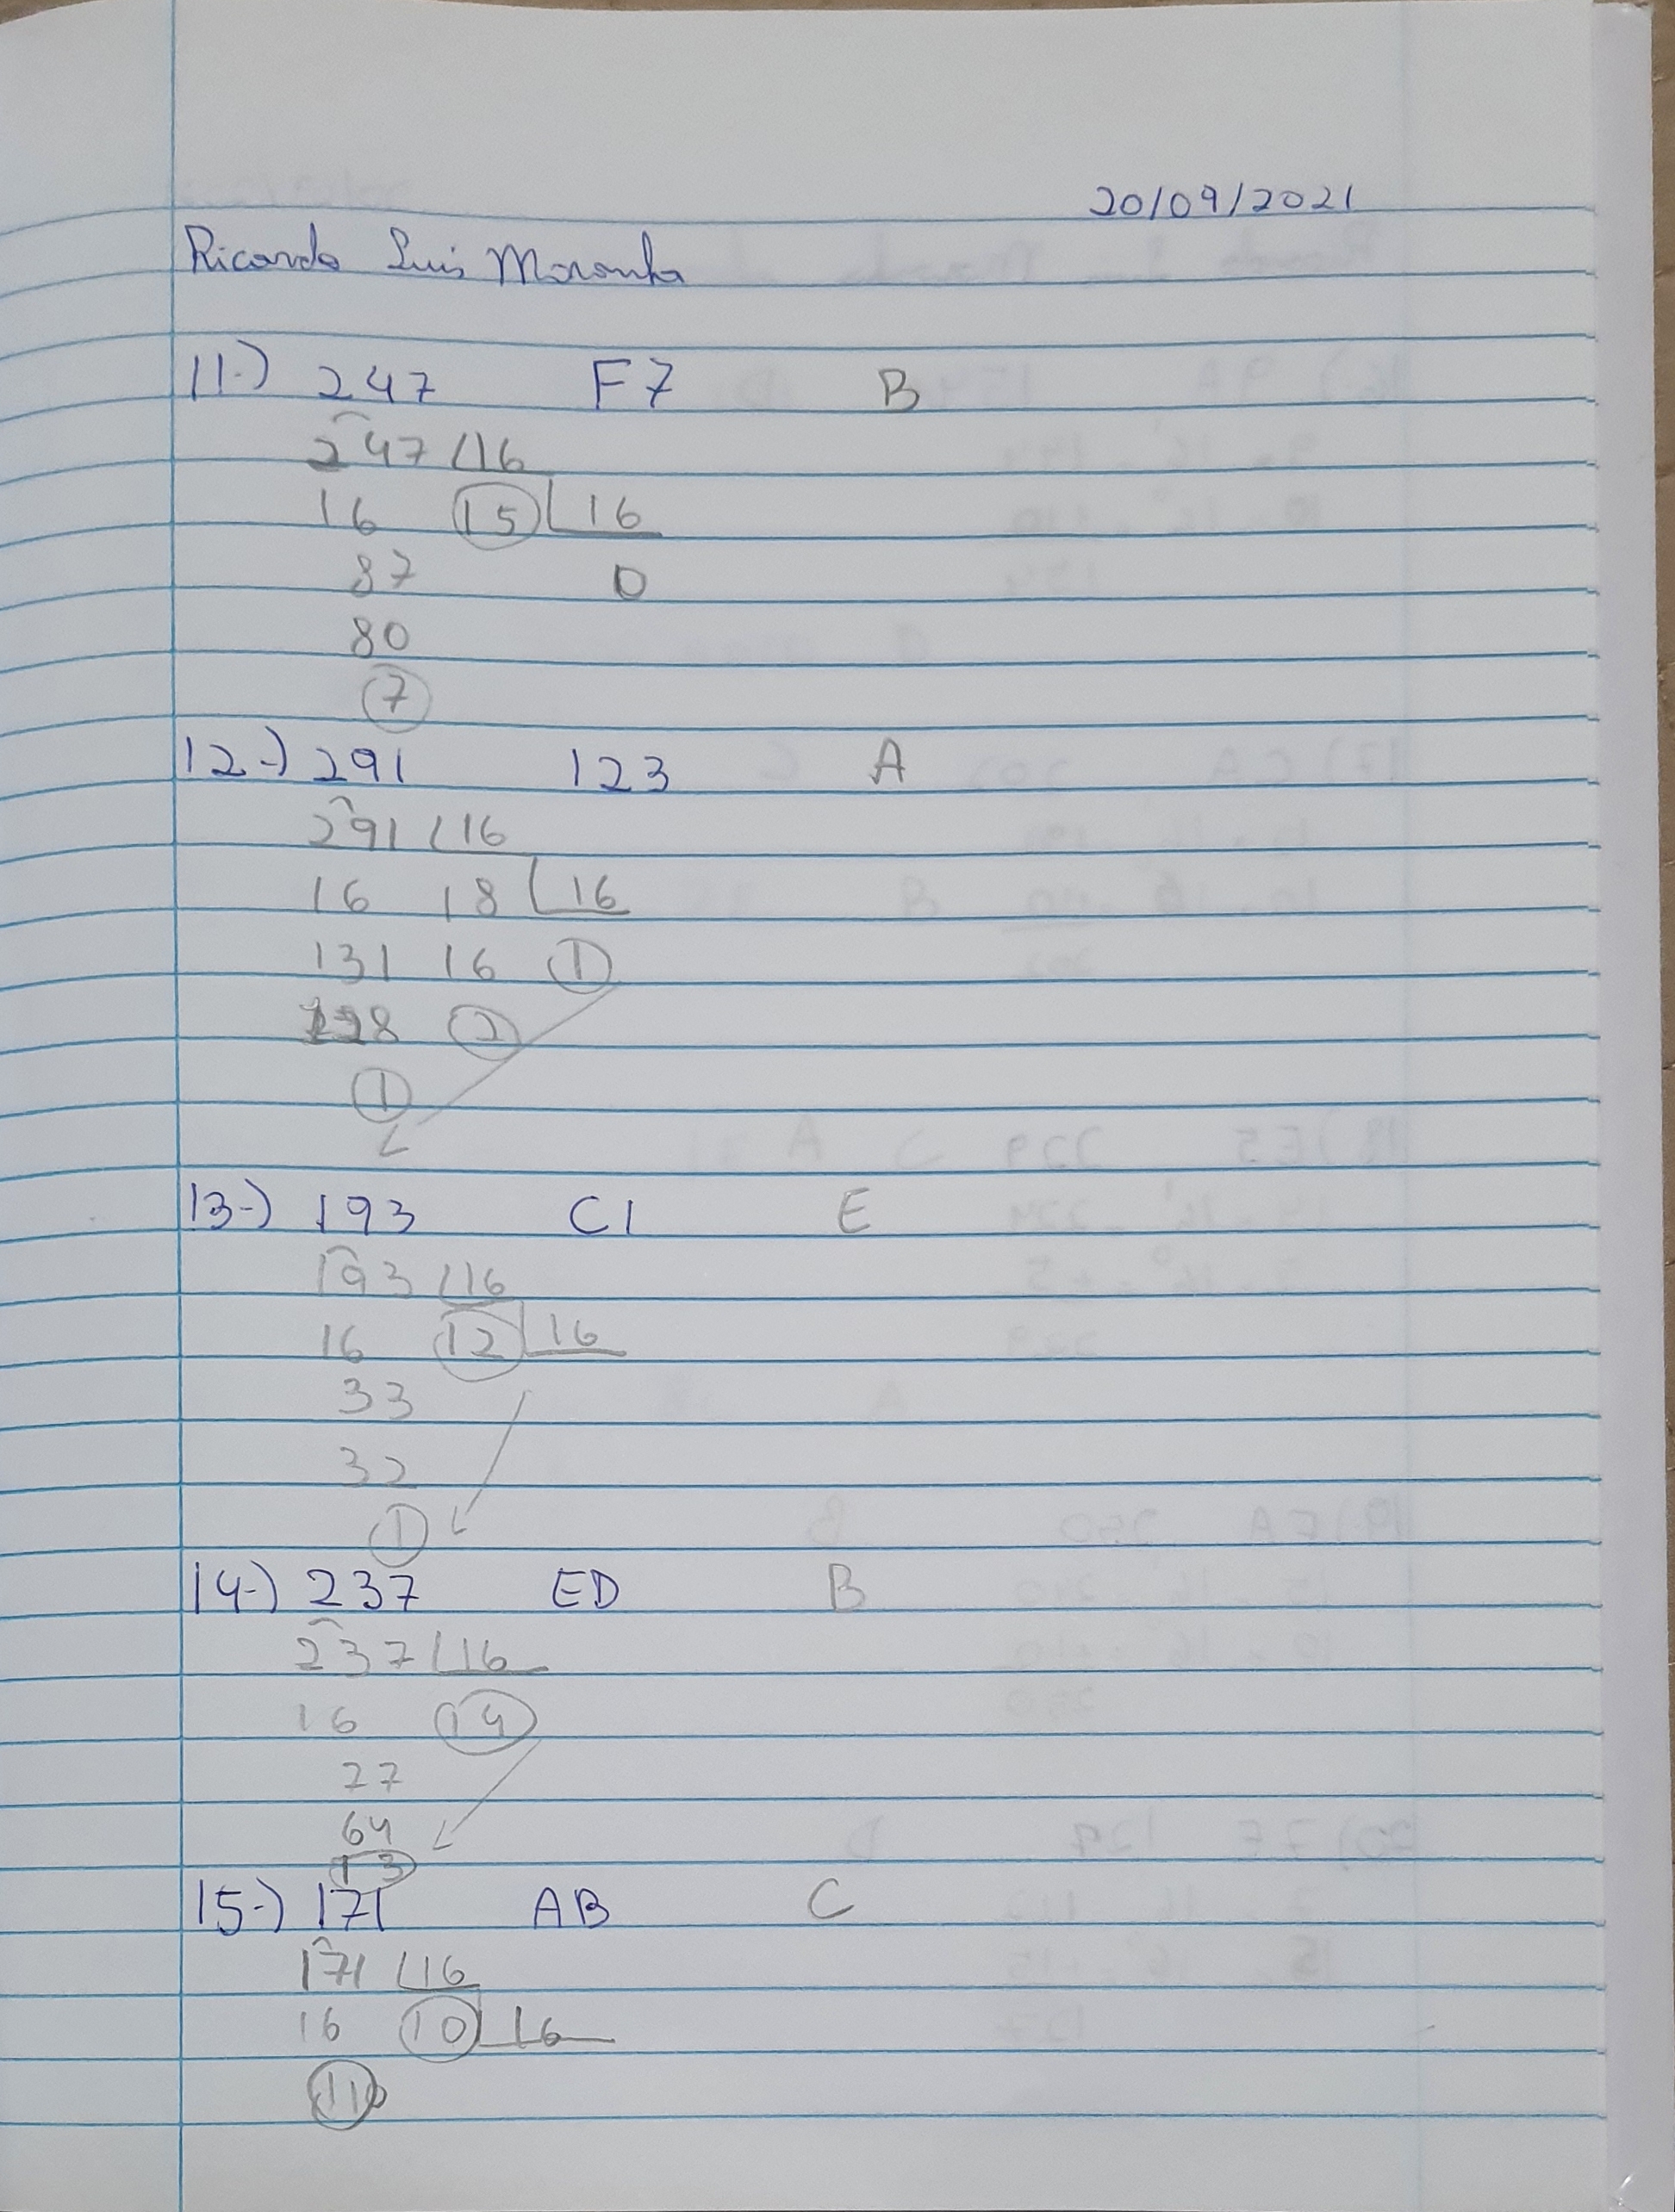 20/09/2021
Ricardo Luis
11-) 247 F7 B
247 16
16 15 16
87 0
80
7
12-) 291 123 A
291 16
16 18 16
131 16 1
128 2
1
13-) 193 C1 E
193 16
16 12 16
33
32
1
14-) 237 ED B
237 16
16 14
77
64
13
15-) 171 AB C
171 16
16 10 16
11